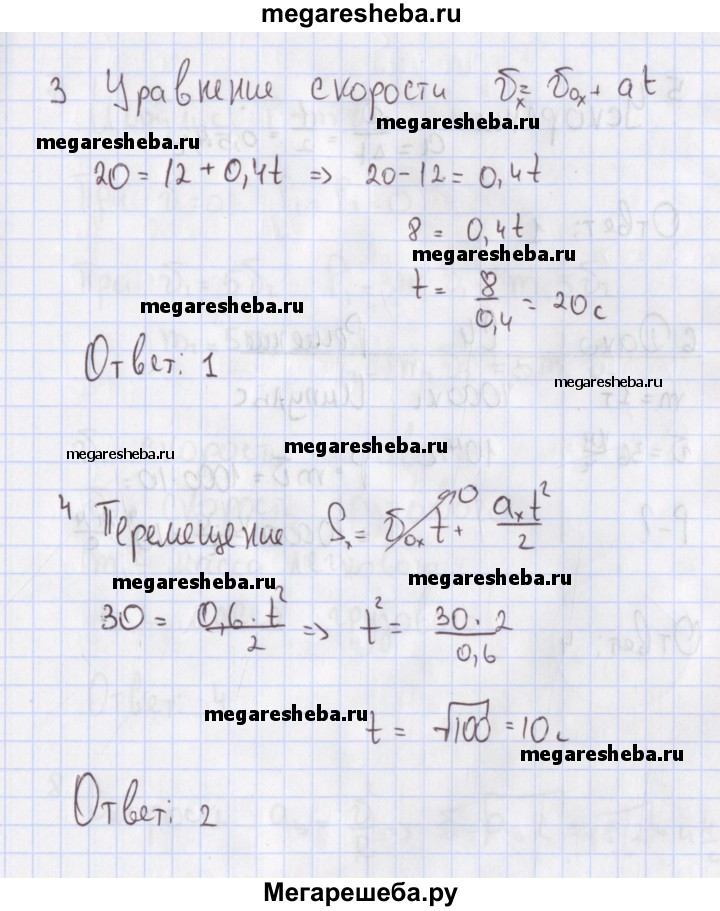 megaresheba.ru
3 Уравнение скорости υₓ = υ₀ₓ + at
megaresheba.ru
megaresheba.ru
20 = 12 + 0,4t => 20 - 12 = 0,4t
8 = 0,4t
megaresheba.ru
t = 8/0,4 = 20 с
megaresheba.ru
Ответ: 1
megaresheba.ru
megaresheba.ru
megaresheba.ru
4 Перемещение Sₓ = υ₀ₓt + aₓt²/2
0
megaresheba.ru
megaresheba.ru
30 = 0,6 · t²/2 => t² = 30 · 2/0,6
megaresheba.ru
t = √100 = 10 с
megaresheba.ru
Ответ: 2
Мегарешеба.ру